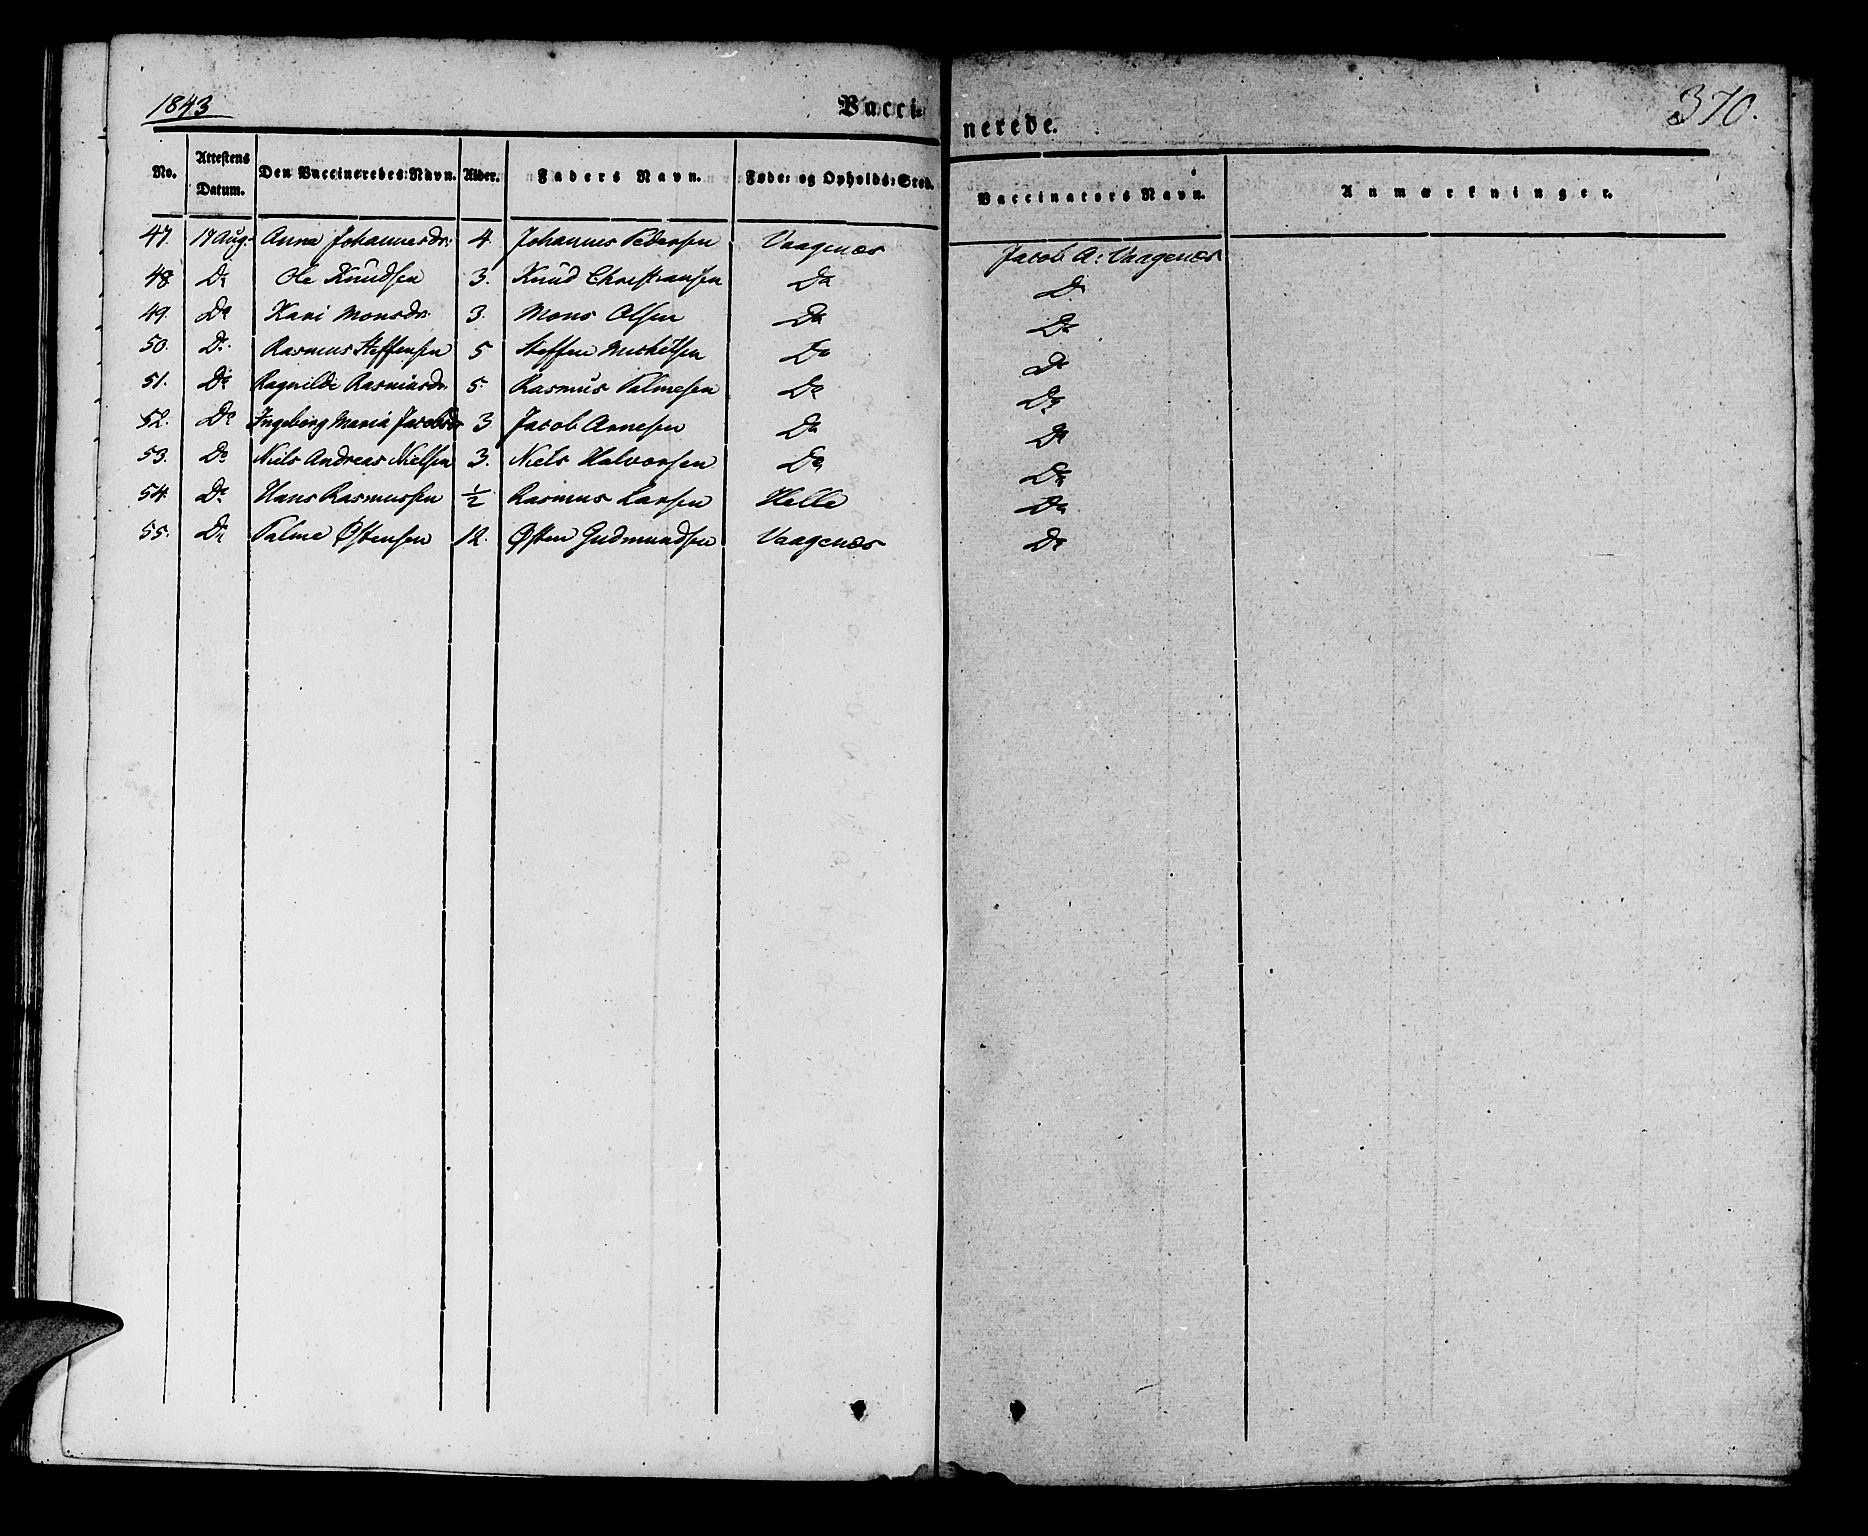 1843 Vacci= nerede. 370.
No. Attestens Datum. Den Vaccineredes Navn. Alder. Faders Navn. Føde= og Opholds=Sted. Vaccinators Navn. Anmærkninger.
47. 17 Aug. Anna Johannesdr. 4. Johannes Pedersen Vaagenæs Jacob A: Vaagenæs
48 Do Ole Knudsen 3. Knud Christiansen Do Do
49. Do Kari Monsdr. 3. Mons Olsen Do Do
50. Do Rasmus Steffensen 5 Steffen Michelsen Do Do
51. Do Ragnilde Rasmusdr. 5. Rasmus Salmesen Do Do
52. Do Ingeborg Maria Jacobsdr 3 Jacob Arnesen Do Do
53. Do Niels Andreas Nielsen 3. Niels Halvorsen Do Do
54. Do Hans Rasmussen ½ Rasmus Larsen Helle Do
55. Do Salme Østensen 12. Østen Gudmundsen Vaagenæs Do